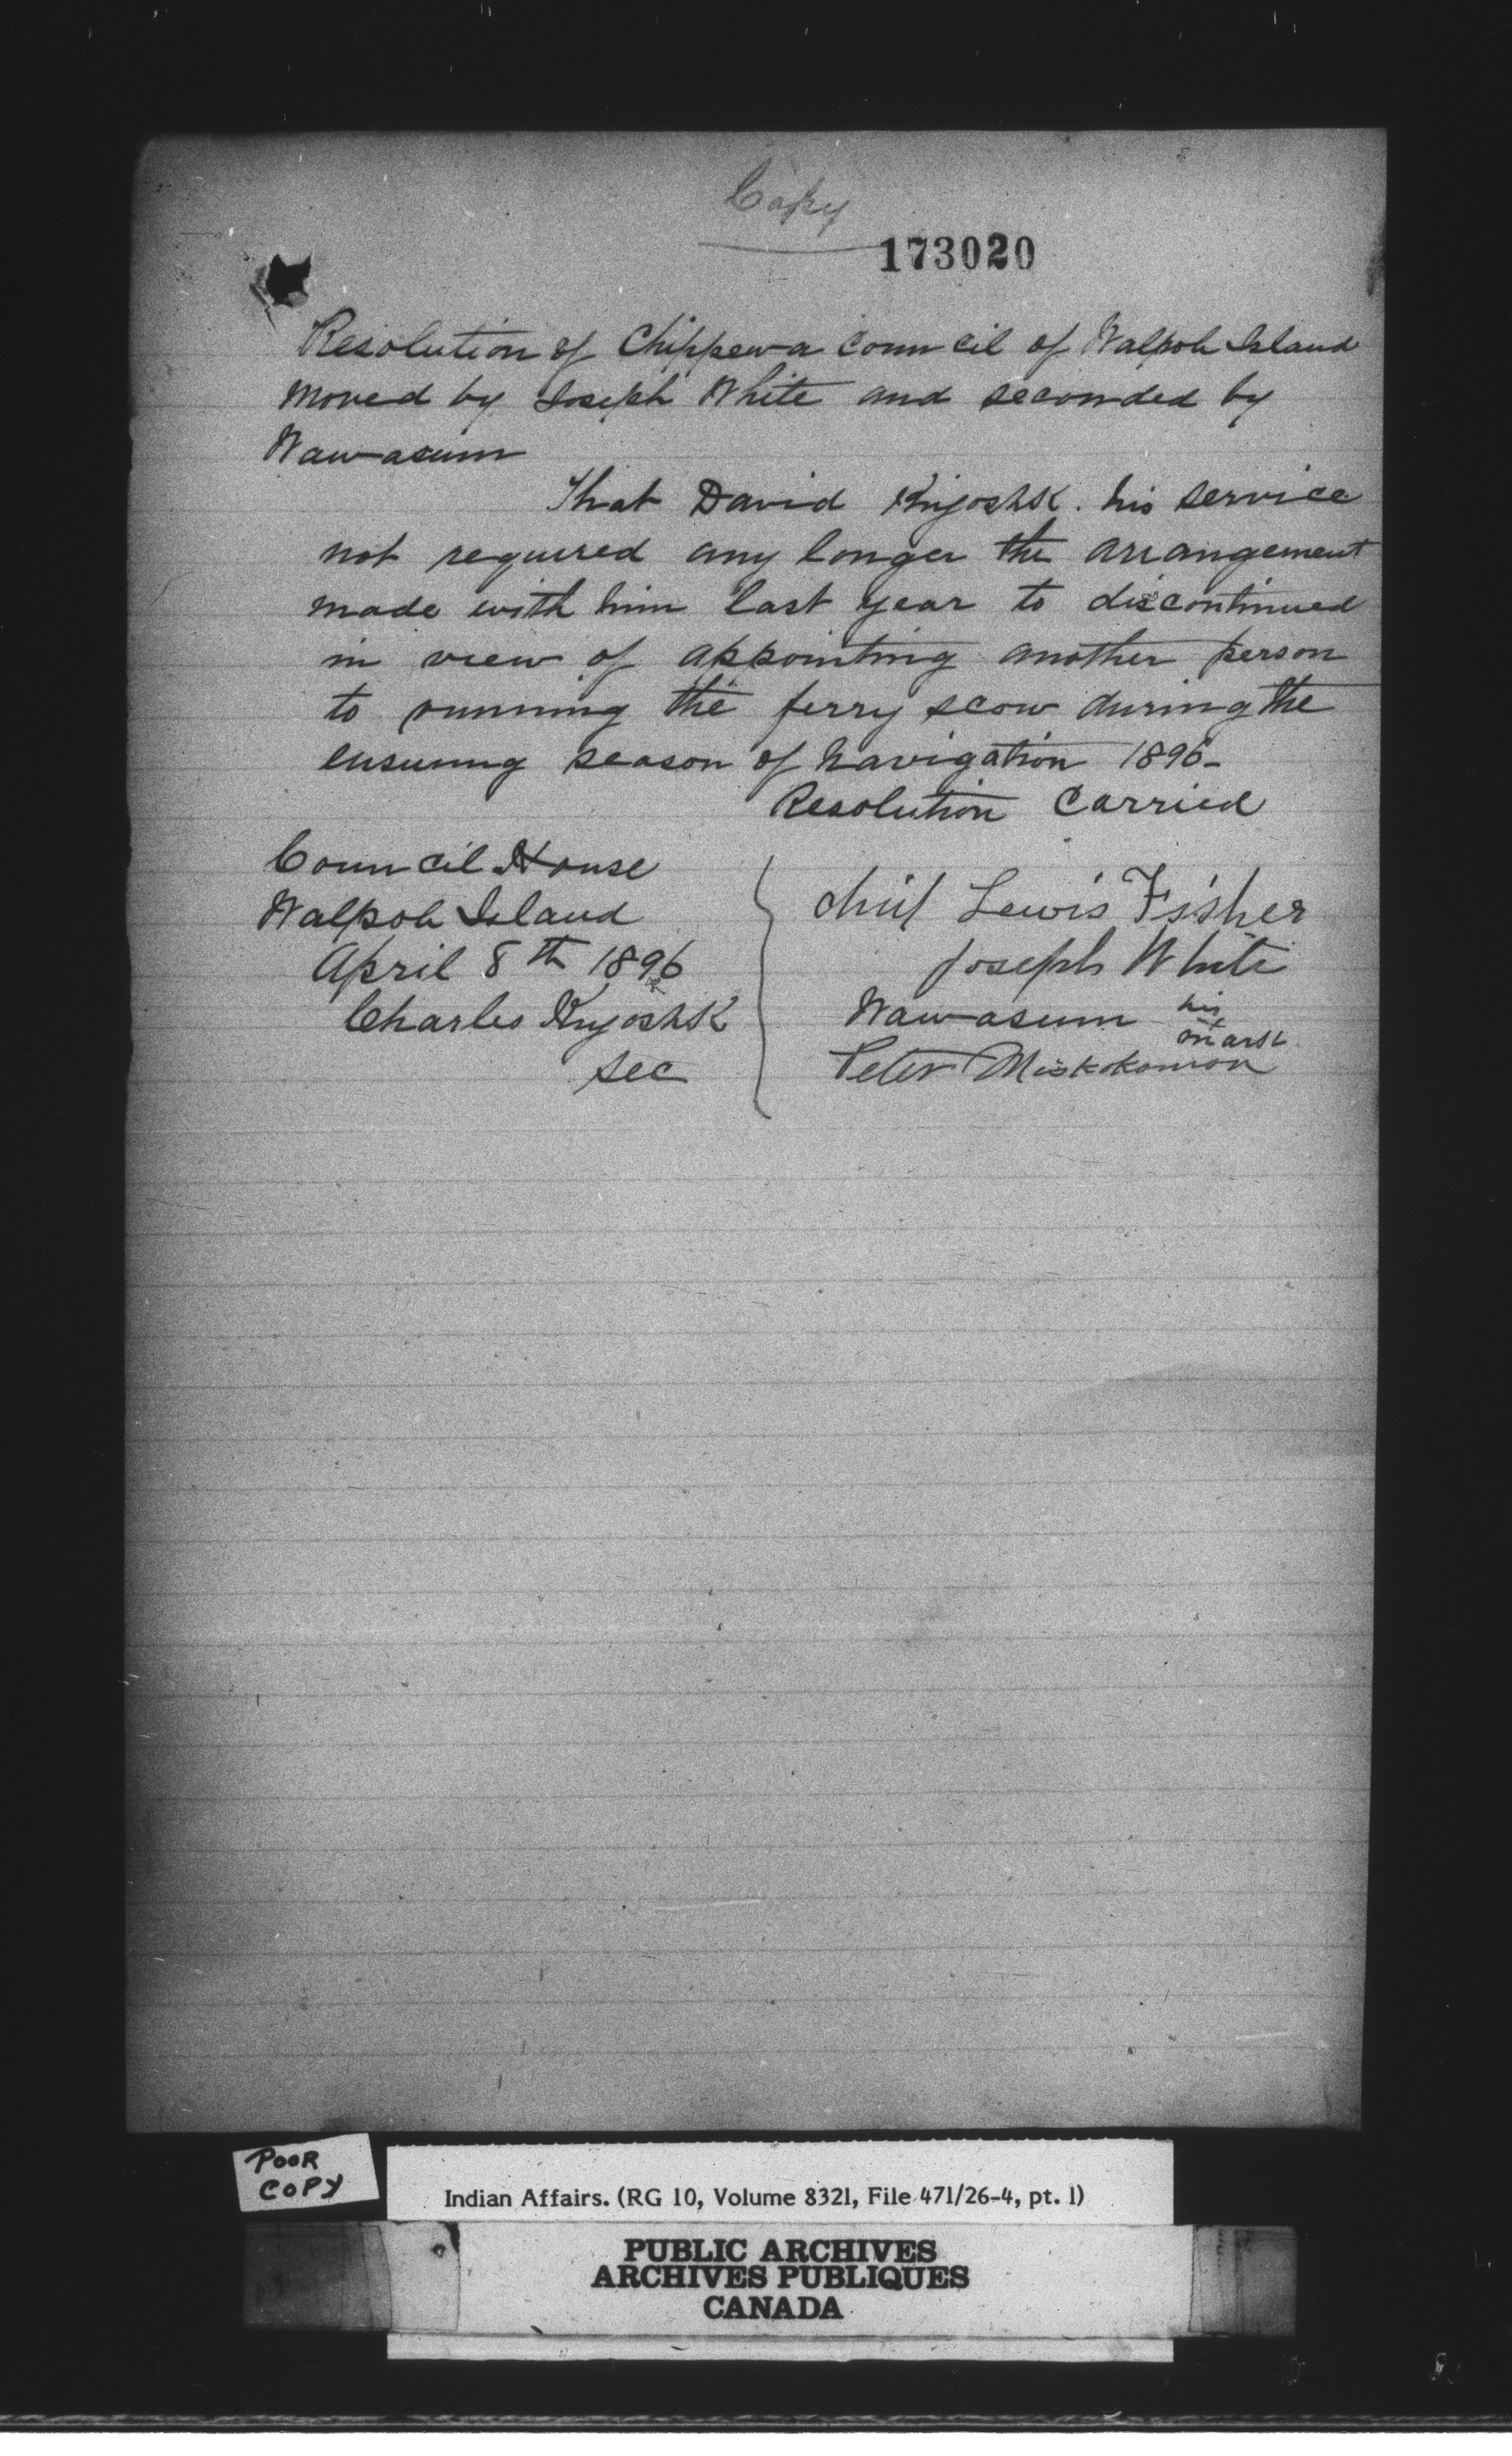 Copy
173020
Resolution of Chippewa Council of Walpole Island
Moved by Joseph White and seconded by
Wawasum
That David Kiyoshk. his service
not required any longer the arrangement
made with him last year to discontinued
in view of appointing another person
to running the ferry scow during the
ensuing season of Navigation 1896-
Resolution Carried
Council House
Walpole Island
April 8th 1896
Charles Kiyoshk
Sec
Chief Lewis Fisher
Joseph White
Wawasum his x mark
Peter Miskokomon
POOR
COPY
Indian Affairs. (RG 10, Volume 8321, File 471/26-4, pt. 1)
PUBLIC ARCHIVES
ARCHIVES PUBLIQUES
CANADA